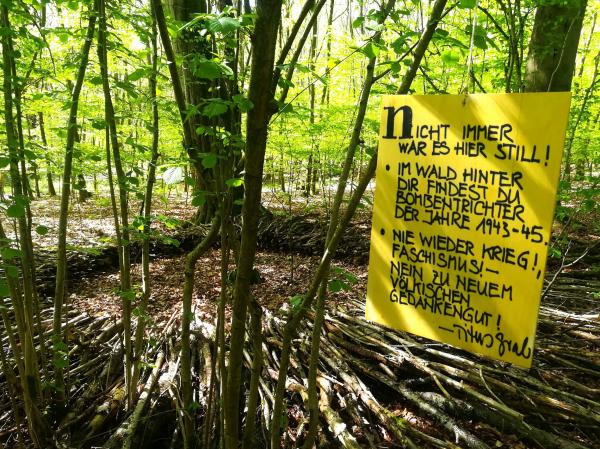 NICHT IMMER
WAR ES HIER STILL!
• IM WALD HINTER
DIR FINDEST DU
BOMBENTRICHTER
DER JAHRE 1943-45.
• NIE WIEDER KRIEG!
FASCHISMUS!—
NEIN ZU NEUEM
VÖLKISCHEN
GEDANKENGUT!